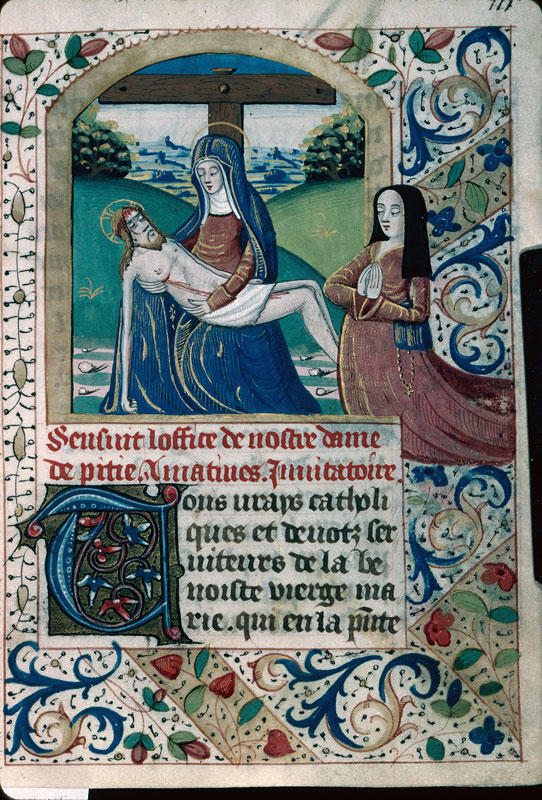 Sensuit loffice de nostre dame
de pitie. A matines. Inuitatoire.
Tous urays catholi
ques et deuotz ser
uiteurs de la be
noiste vierge ma
rie. qui en la pn̄te